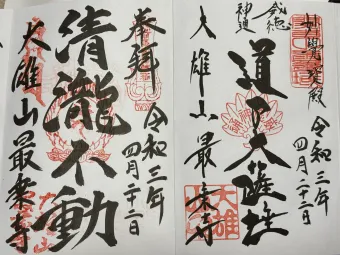 妙覺寶殿
令和三年
四月二十二日
威徳
神通
道了大薩埵
大雄山最乗寺
奉拝
令和三年
四月二十二日
清瀧不動
大雄山最乗寺